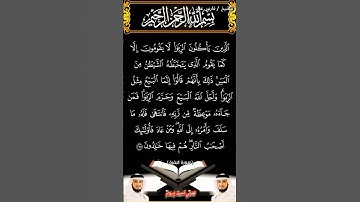 بسم الله الرحمن الرحيم
ٱلَّذِينَ يَأْكُلُونَ ٱلرِّبَوٰا۟ لَا يَقُومُونَ إِلَّا
كَمَا يَقُومُ ٱلَّذِى يَتَخَبَّطُهُ ٱلشَّيْطَٰنُ مِنَ
ٱلْمَسِّ ذَٰلِكَ بِأَنَّهُمْ قَالُوٓا۟ إِنَّمَا ٱلْبَيْعُ مِثْلُ
ٱلرِّبَوٰا۟ وَأَحَلَّ ٱللَّهُ ٱلْبَيْعَ وَحَرَّمَ ٱلرِّبَوٰا۟ فَمَن
جَآءَهُۥ مَوْعِظَةٌ مِّن رَّبِّهِۦ فَٱنتَهَىٰ فَلَهُۥ مَا
سَلَفَ وَأَمْرُهُۥٓ إِلَى ٱللَّهِ وَمَنْ عَادَ فَأُو۟لَٰٓئِكَ
أَصْحَٰبُ ٱلنَّارِ هُمْ فِيهَا خَٰلِدُونَ